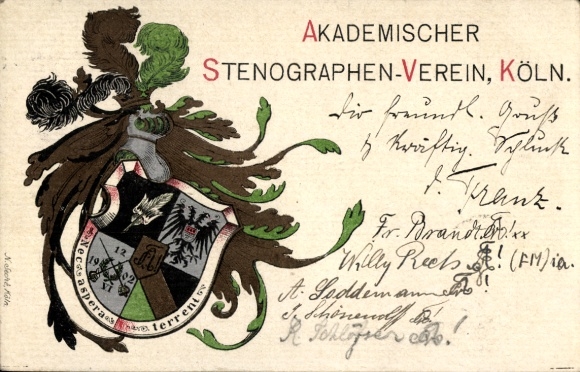 AKADEMISCHER
STENOGRAPHEN-VEREIN, KÖLN.
Dir freundl. Gruß
& kräftig. Schluck
d. Franz.
Fr. Brandt ! xx
Willy Reets ! (FM) ia.
A. Loddemann !
S. Schönendorff !
R. Schlösser !
Nec aspera terrent
12
19 02
VI